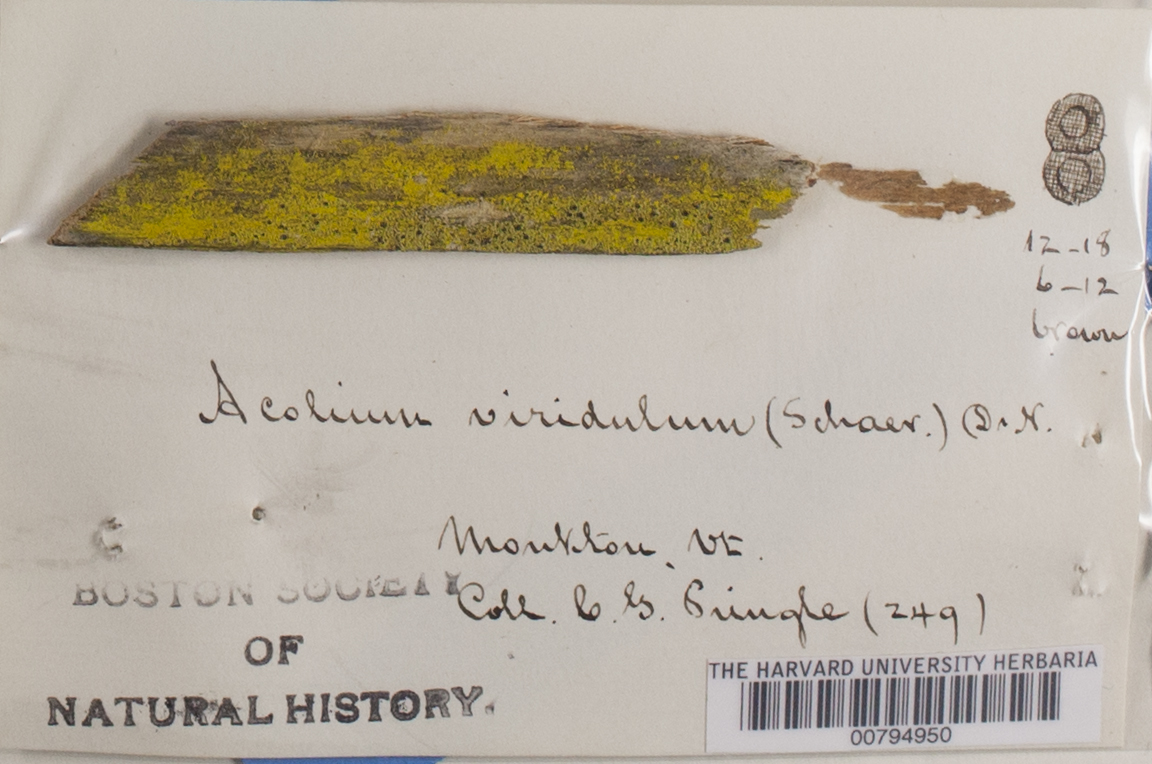 12-18
6-12
brown
Acolium viridulum (Schaer.) DeN.
Monkton, Vt.
BOSTON SOCIETY
Coll. C. G. Pringle (249)
OF
NATURAL HISTORY.
THE HARVARD UNIVERSITY HERBARIA
00794950